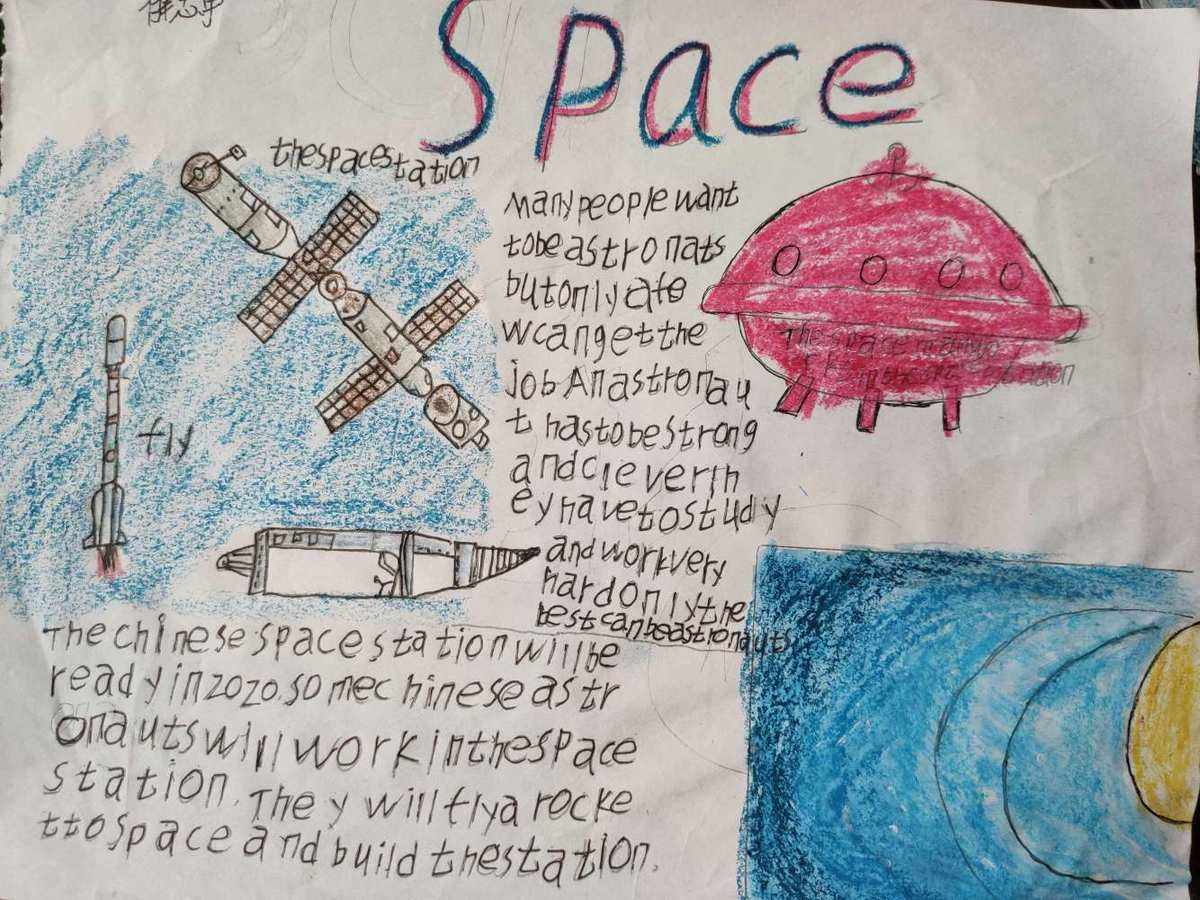 Space
thespacestation
manypeoplewant
tobeastronats
butonlyafe
wcangetthe
jobAnastronau
t hastobestrong
andcleverth
eyhavetostudiy
andworkvery
hardonlythe
bestcanbeastronauts
The space
fly
Thechinesespacestationwillbe
readyin2020.somechineseastr
onautswillworkinthespace
station. They willflya rocke
ttospace andbuild thestation.